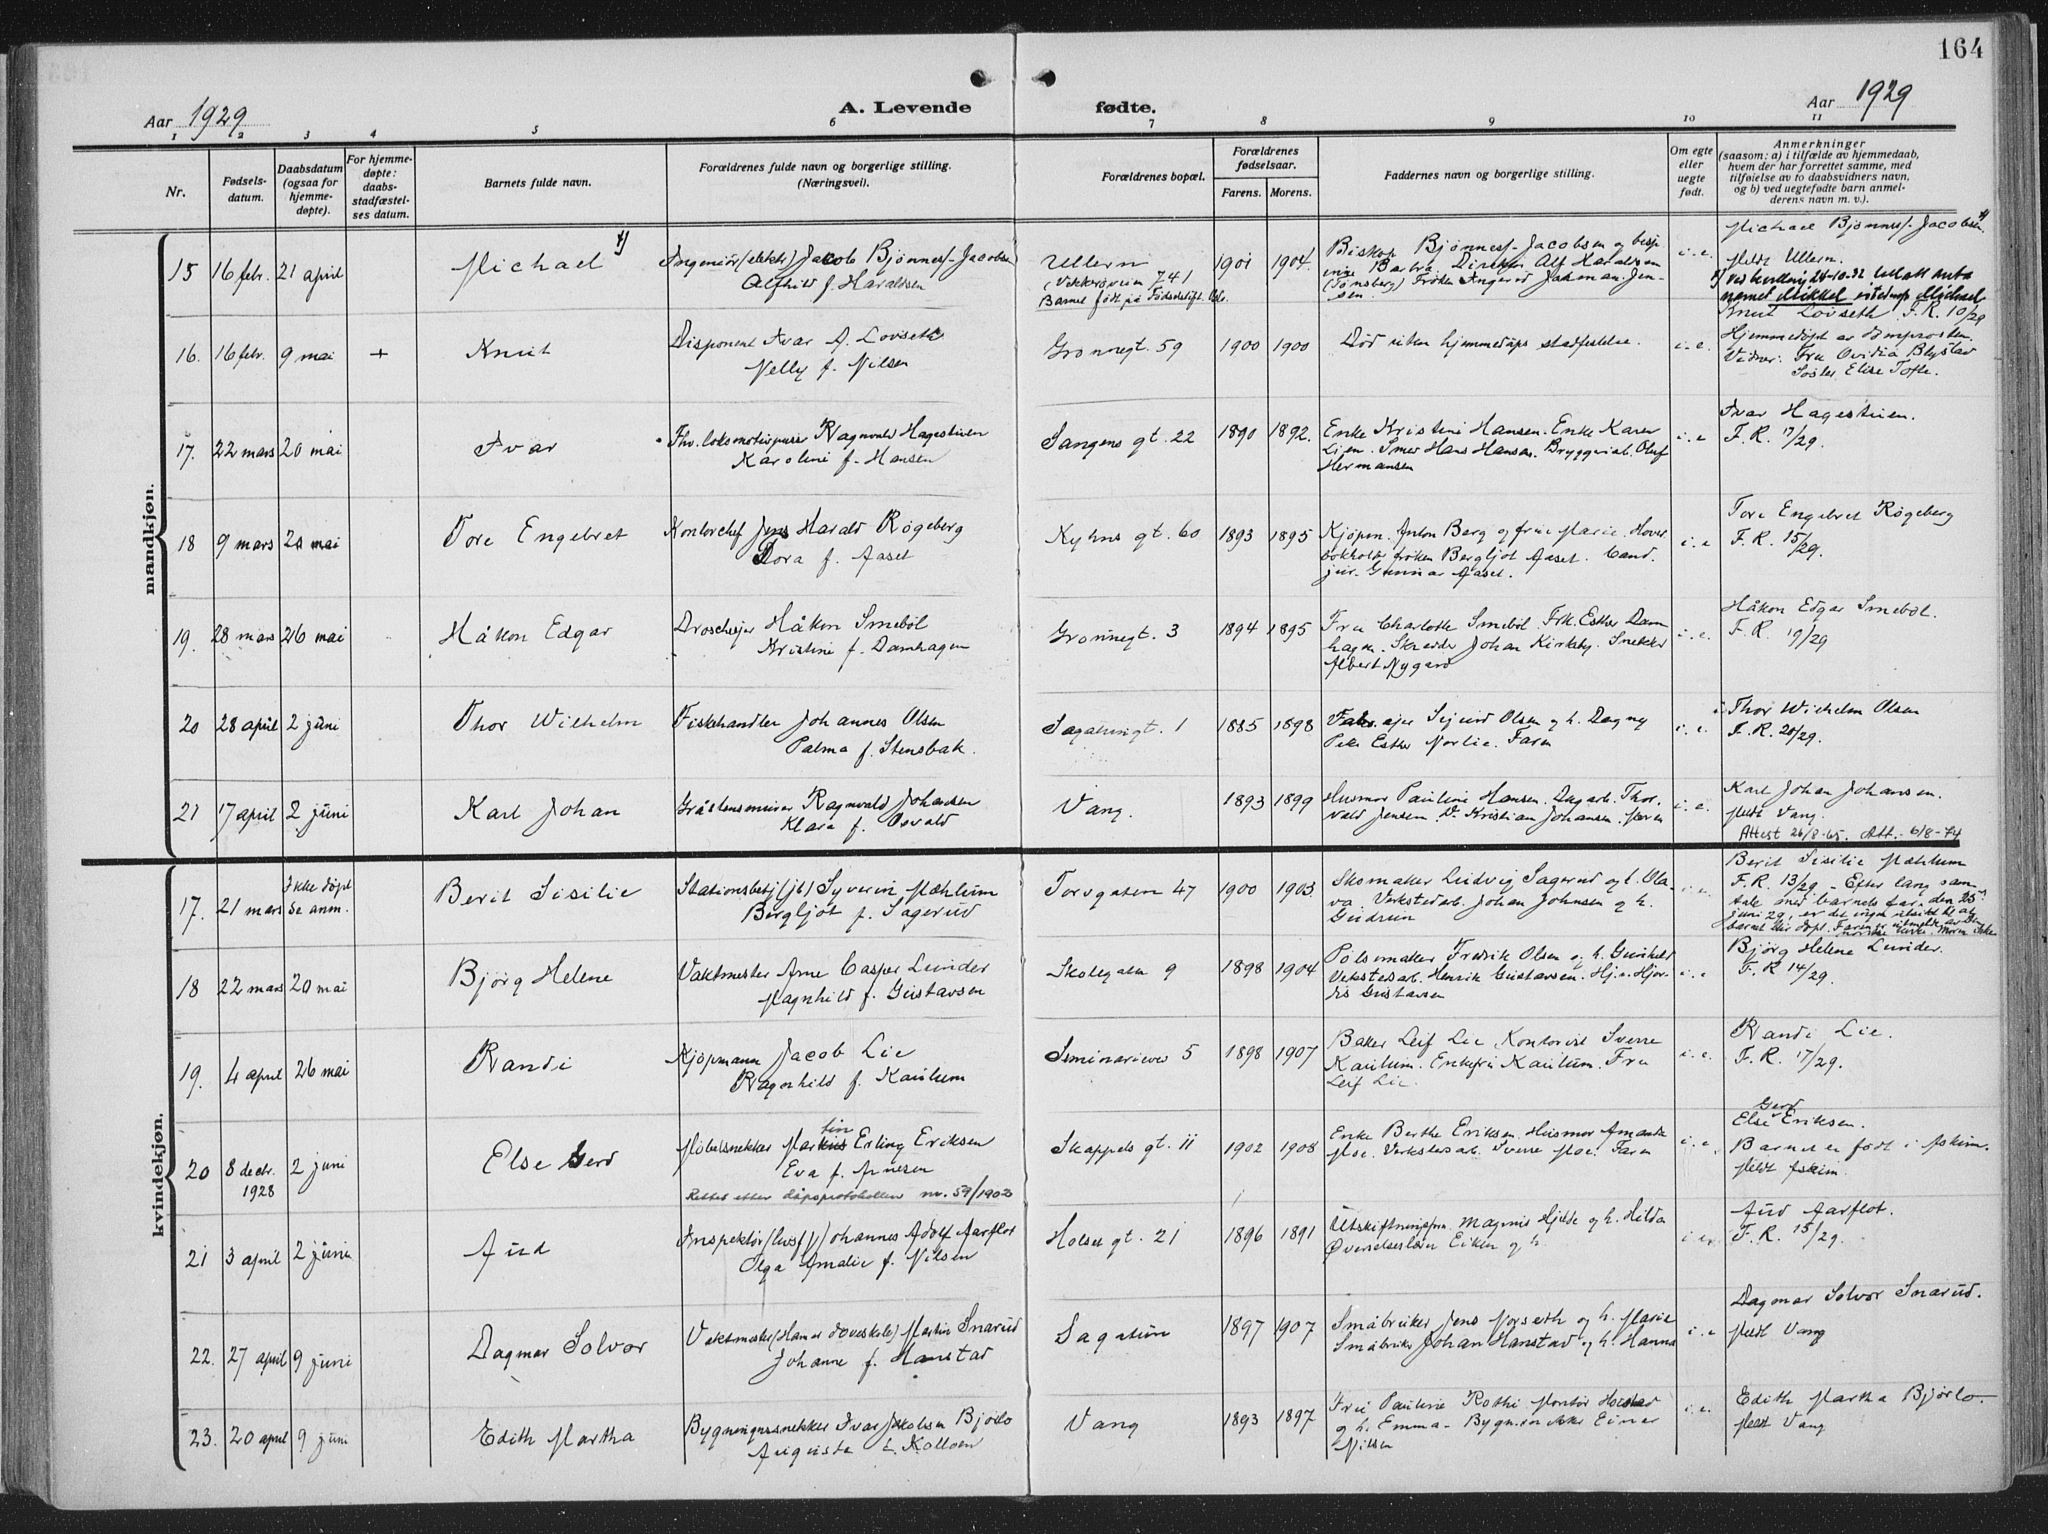 164
Aar 1929
A. Levende fødte.
Aar 1929
1 2 3 4 5 6 7 8 9 10 11
Nr.
Fødsels-
datum.
Daabsdatum
(ogsaa for
hjemme-
døpte).
For hjemme-
døpte:
daabs-
stadfæstel-
ses datum.
Barnets fulde navn.
Forældrenes fulde navn og borgerlige stilling.
(Næringsvei).
Forældrenes bopæl.
Forældrenes
fødselsaar.
Farens. Morens.
Faddernes navn og borgerlige stilling.
Om egte
eller
uegte
født.
Anmerkninger
(saasom: a) i tilfælde av hjemmedaab,
hvem der har forrettet samme, med
tilføielse av to daabsvidners navn,
og b) ved uegtefødte barn anmel-
derens navn m. v.).
mandkjøn.
15 16 febr. 21 april
Michael
Ingeniør (elektr) Jacob Bjønnes-Jacobsen
Alfhild f. Haraldsen
Ullern
Barnet født på Fødselsstift. Oslo.
1901 1904
Biskop Bjønnes-Jacobsen og bisp-
inne Barbra. Direktør Alf Haraldsen
(Tønsberg) Frøken Ingerid Jakman-Jen-
sen.
i. e.
Michael Bjønnes-Jacobsen
Meldt Ullern.
navnet Mikkel istedenfor Michael
16. 16 febr. 9 mai +
Knut
Disponent Ivar A. Lovseth
Nelly f. Nilsen
Grønnegt. 59
1900 1900
Død uten hjemmedåps stadfestelse.
i. e.
Knut Lovseth F. R. 10/29
Hjemmedøpt av domprosten.
Vidner: Fru Ovidia Blystad
Søster Elise Tofte.
17. 22 mars 20 mai
Ivar
Fhv. lokomotivpuser Ragnvald Hagestuen
Karoline f. Hansen
Vangens gt. 22
1890 1892.
Enke Kristine Hansen. Enke Karen
Lien. Smed Hans Hansen. Bryggeriarb. Oluf
Hermansen
i. e
Ivar Hagestuen.
F. R. 17/29.
18 9 mars 20 mai
Tore Engebret
Kontorchef Jens Harald Røgeberg
Dora f. Aaset
Kyhns gt. 60
1893 1895
Kjøpm. Anton Berg og frue Marie. Hoved
bokholder frøken Bergljot Aaset. Cand.
jur. Gunnar Aaset.
i. e
Tore Engebret Røgeberg
F. R. 15/29.
19. 28 mars 26 mai
Håkon Edgar
Droscheejer Håkon Smebøl
Kristine f. Damhagen
Grønnegt. 3
1894 1895
Fru Charlotte Smebøl. Frk. Esther Dam
hagen. Skredder Johan Kirkeby. Snekker
Albert Nygård
i. e.
Håkon Edgar Smebøl.
F. R. 19/29
20 28 april 2 juni
Thor Wilhelm
Fiskehandler Johannes Olsen
Palma f. Stensbak.
Sagatungt. 1
1885 1898
Sigurd Olsen og h. Dagny
Esther Norlie. Faren
i. e.
Thor Wilhelm Olsen
F. R. 20/29.
21 17 april 2 juni
Karl Johan
Gråstensmurer Ragnvald Johansen
Klara f. Osvald
Vang.
1893 1899
Husmor Pauline Hansen. Dagarb. Thor-
vald Jensen. Do Kristian Johansen. Faren
i. e.
Karl Johan Johansen.
Meldt Vang.
Attest 26/8-65. Att. 6/8-74
kvindekjøn.
17. 21 mars Ikke døpt
Se anm.
Berit Sisilie
Stationsbetj (jb) Syverin Mæhlum
Bergljot f. Sagerud
Torvgaten 47
1900 1903
Skomaker Ludvig Sagerud og h. Ola-
va. Verkstedarb. Johan Johnsen og h.
Gudrun
i. e.
Berit Sisilie Mæhlum
F. R. 13/29. - Efter lang sam-
tale med barnets far, den 25
juni 29, er det ingen utsikt til at
barnet blir døpt. Faren er utmeldt av den
norske kirke. Moren ikke
18 22 mars 20 mai
Bjørg Helene
Vaktmester Arne Casper Lunder
Magnhild f. Gustavsen
Skolegaten 9
1898 1904
Pølsemaker Fredrik Olsen og h. Gunhild
Verkstedarb. Henrik Gustavsen. Hj.a. Hjør-
dis Gustavsen
i. e
Bjørg Helene Lunder.
F. R. 14/29.
19. 4 april 26 mai
Randi
Kjøpmann Jacob Lie
Ragnhild f. Kaulum
Seminarievei 5
1898 1907
Baker Leif Lie. Kontorist Sverre
Kaulum. Enkefru Kaulum. Fru
Leif Lie.
i. e.
Randi Lie.
F. R. 17/29.
20 8 decbr.
1928 2 juni
Else Gerd
tin
Møbelsnekker Markus Erling Eriksen
Eva f. Arnesen
Rettet etter dåpsprotokollen nr. 59/1902
Skappels gt. 11
1902 1908
Enke Berthe Eriksen. Husmor Amanda
Moe. Verkstedarb. Sverre Moe. Faren
i. e
Gerd
Else Eriksen.
Barnet er født i Askim.
Meldt Askim.
21 3 april 2 juni
Aud
Inspektør (livsf) Johannes Adolf Aarflot
Olga Amalie f. Nilsen
Holset gt. 21
1896 1891
Utskiftningsform. Magnus Hjelde og h. Hilda
Øverlelselærer Eiken og h.
i. e.
Aud Aarflot.
F. R. 15/29.
22. 27 april 9 juni
Dagmar Solvor
Vaktmester (Hamar døveskole) Martin Snarud
Johanne f. Hanstad
Sagatun
1897 1907
Småbruker Jens Norseth og h. Marie
Småbruker Johan Hanstad og h. Hanna
i. e
Dagmar Solvor Snarud.
Meldt Vang
23. 20 april 9 juni
Edith Martha
Bygningssnekker Ivar Jakobsen Bjørlo
Auguste f. Kolloen
Vang
1893 1897
Fru Pauline Rothi Montør Hovstad
og h. Emma. Bygn.snekker Einar
Nilsen
i. e.
Edith Martha Bjørlo.
Meldt Vang